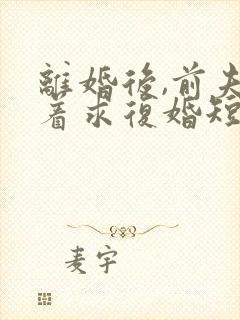 離婚後,前夫
着求復婚短
麦宇